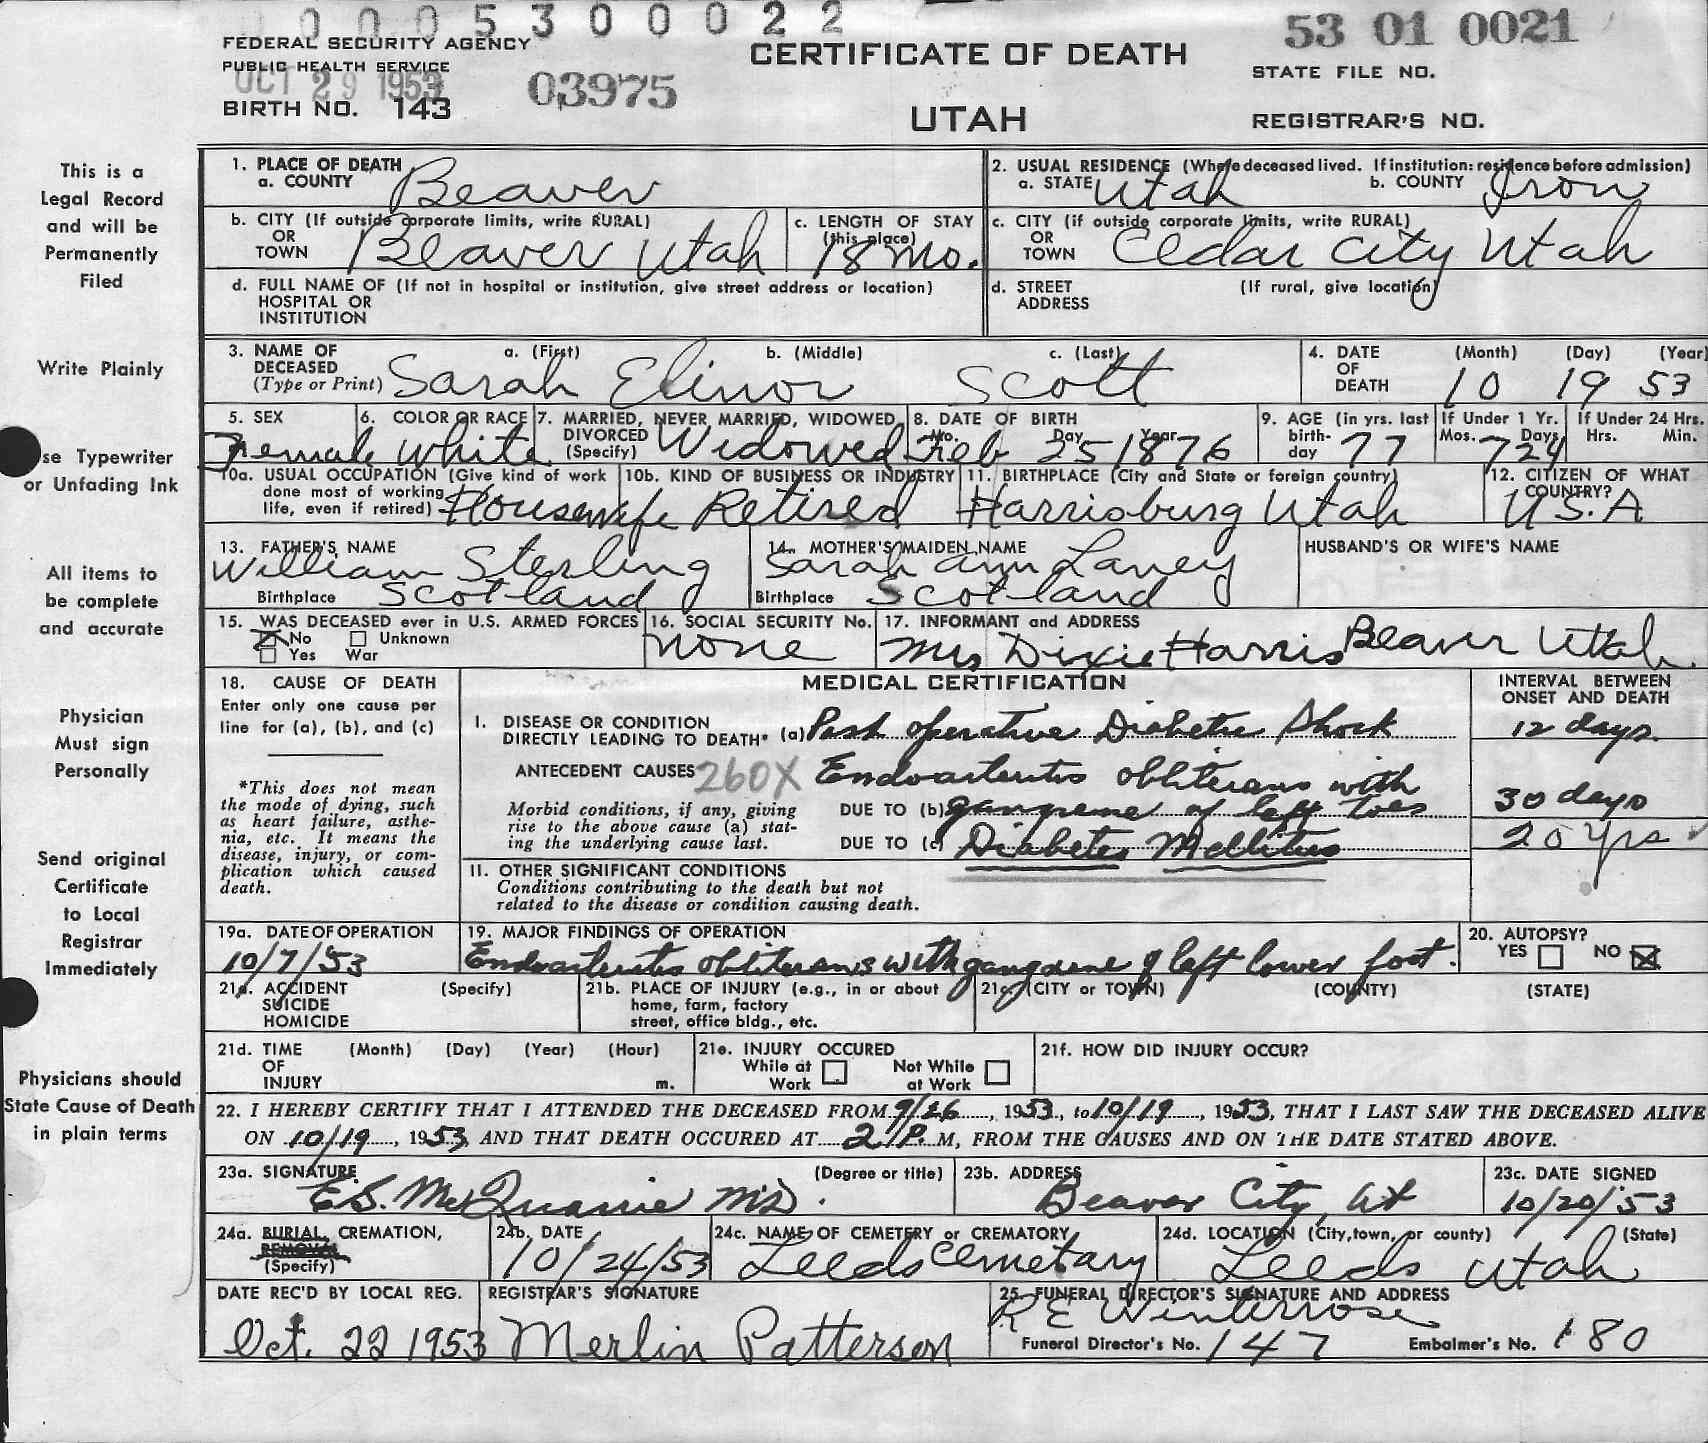 0 0 0 5 3 0 0 0 2 2
53 01 0021
FEDERAL SECURITY AGENCY
PUBLIC HEALTH SERVICE
OCT 29 1953
BIRTH NO. 143
03975
CERTIFICATE OF DEATH
UTAH
STATE FILE NO.
REGISTRAR'S NO.
This is a
Legal Record
and will be
Permanently
Filed
Write Plainly
se Typewriter
or Unfading Ink
All items to
be complete
and accurate
Physician
Must sign
Personally
Send original
Certificate
to Local
Registrar
Immediately
Physicians should
State Cause of Death
in plain terms
1. PLACE OF DEATH
a. COUNTY Beaver
2. USUAL RESIDENCE (Where deceased lived. If institution: residence before admission)
a. STATE Utah b. COUNTY Iron
b. CITY (If outside corporate limits, write RURAL)
OR
TOWN Beaver Utah
c. LENGTH OF STAY
(this place)
18 Mo.
c. CITY (if outside corporate limits, write RURAL)
OR
TOWN Cedar City Utah
d. FULL NAME OF (If not in hospital or institution, give street address or location)
HOSPITAL OR
INSTITUTION
d. STREET (If rural, give location)
ADDRESS
3. NAME OF a. (First) b. (Middle) c. (Last)
DECEASED
(Type or Print) Sarah Elinor Scott
4. DATE (Month) (Day) (Year)
OF
DEATH 10 19 53
5. SEX
Female
6. COLOR OR RACE
White
7. MARRIED, NEVER MARRIED, WIDOWED,
DIVORCED
(Specify) Widowed
8. DATE OF BIRTH
Mo. Day Year
Feb 25 1876
9. AGE (in yrs. last
birth-
day 77
If Under 1 Yr.
Mos. Days
7 24
If Under 24 Hrs.
Hrs. Min.
10a. USUAL OCCUPATION (Give kind of work
done most of working
life, even if retired) Housewife
10b. KIND OF BUSINESS OR INDUSTRY
Retired
11. BIRTHPLACE (City and State or foreign country)
Harrisburg Utah
12. CITIZEN OF WHAT
COUNTRY?
U.S.A
13. FATHER'S NAME
William Sterling
Birthplace Scotland
14. MOTHER'S MAIDEN NAME
Sarah Ann Laney
Birthplace Scotland
HUSBAND'S OR WIFE'S NAME
15. WAS DECEASED ever in U.S. ARMED FORCES
No Unknown
Yes War
16. SOCIAL SECURITY No.
none
17. INFORMANT and ADDRESS
Mrs Dixie Harris Beaver Utah
18. CAUSE OF DEATH
Enter only one cause per
line for (a), (b), and (c)
*This does not mean
the mode of dying, such
as heart failure, asthe-
nia, etc. It means the
disease, injury, or com-
plication which caused
death.
MEDICAL CERTIFICATION
INTERVAL BETWEEN
ONSET AND DEATH
I. DISEASE OR CONDITION
DIRECTLY LEADING TO DEATH* (a) Post operative Diabetic Shock 12 days.
ANTECEDENT CAUSES 260X Endoarteritis obliterans with
Morbid conditions, if any, giving
rise to the above cause (a) stat-
ing the underlying cause last.
DUE TO (b) gangrene of left toes 30 days
DUE TO (c) Diabetes Mellitus 20 Yrs
II. OTHER SIGNIFICANT CONDITIONS
Conditions contributing to the death but not
related to the disease or condition causing death.
19a. DATE OF OPERATION
10/7/53
19. MAJOR FINDINGS OF OPERATION
Endoarteritis obliterans with gangrene of left lower foot.
20. AUTOPSY?
YES NO
21a. ACCIDENT (Specify)
SUICIDE
HOMICIDE
21b. PLACE OF INJURY (e.g., in or about
home, farm, factory
street, office bldg., etc.
21c. (CITY or TOWN) (COUNTY) (STATE)
21d. TIME (Month) (Day) (Year) (Hour)
OF
INJURY m.
21e. INJURY OCCURED
While at Not While
Work at Work
21f. HOW DID INJURY OCCUR?
22. I HEREBY CERTIFY THAT I ATTENDED THE DECEASED FROM 9/26, 1953, to 10/19, 1953, THAT I LAST SAW THE DECEASED ALIVE
ON 10/19, 1953, AND THAT DEATH OCCURED AT 2 P. M, FROM THE CAUSES AND ON THE DATE STATED ABOVE.
23a. SIGNATURE (Degree or title)
E.S. McQuarrie MD.
23b. ADDRESS
Beaver City, Ut
23c. DATE SIGNED
10/20/53
24a. BURIAL, CREMATION,
REMOVAL
(Specify)
24b. DATE
10/24/53
24c. NAME OF CEMETERY or CREMATORY
Leeds Cemetary
24d. LOCATION (City, town, or county) (State)
Leeds Utah
DATE REC'D BY LOCAL REG.
Oct. 22 1953
REGISTRAR'S SIGNATURE
Merlin Patterson
25. FUNERAL DIRECTOR'S SIGNATURE AND ADDRESS
R E Winterrose
Funeral Director's No. 147 Embalmer's No. 180